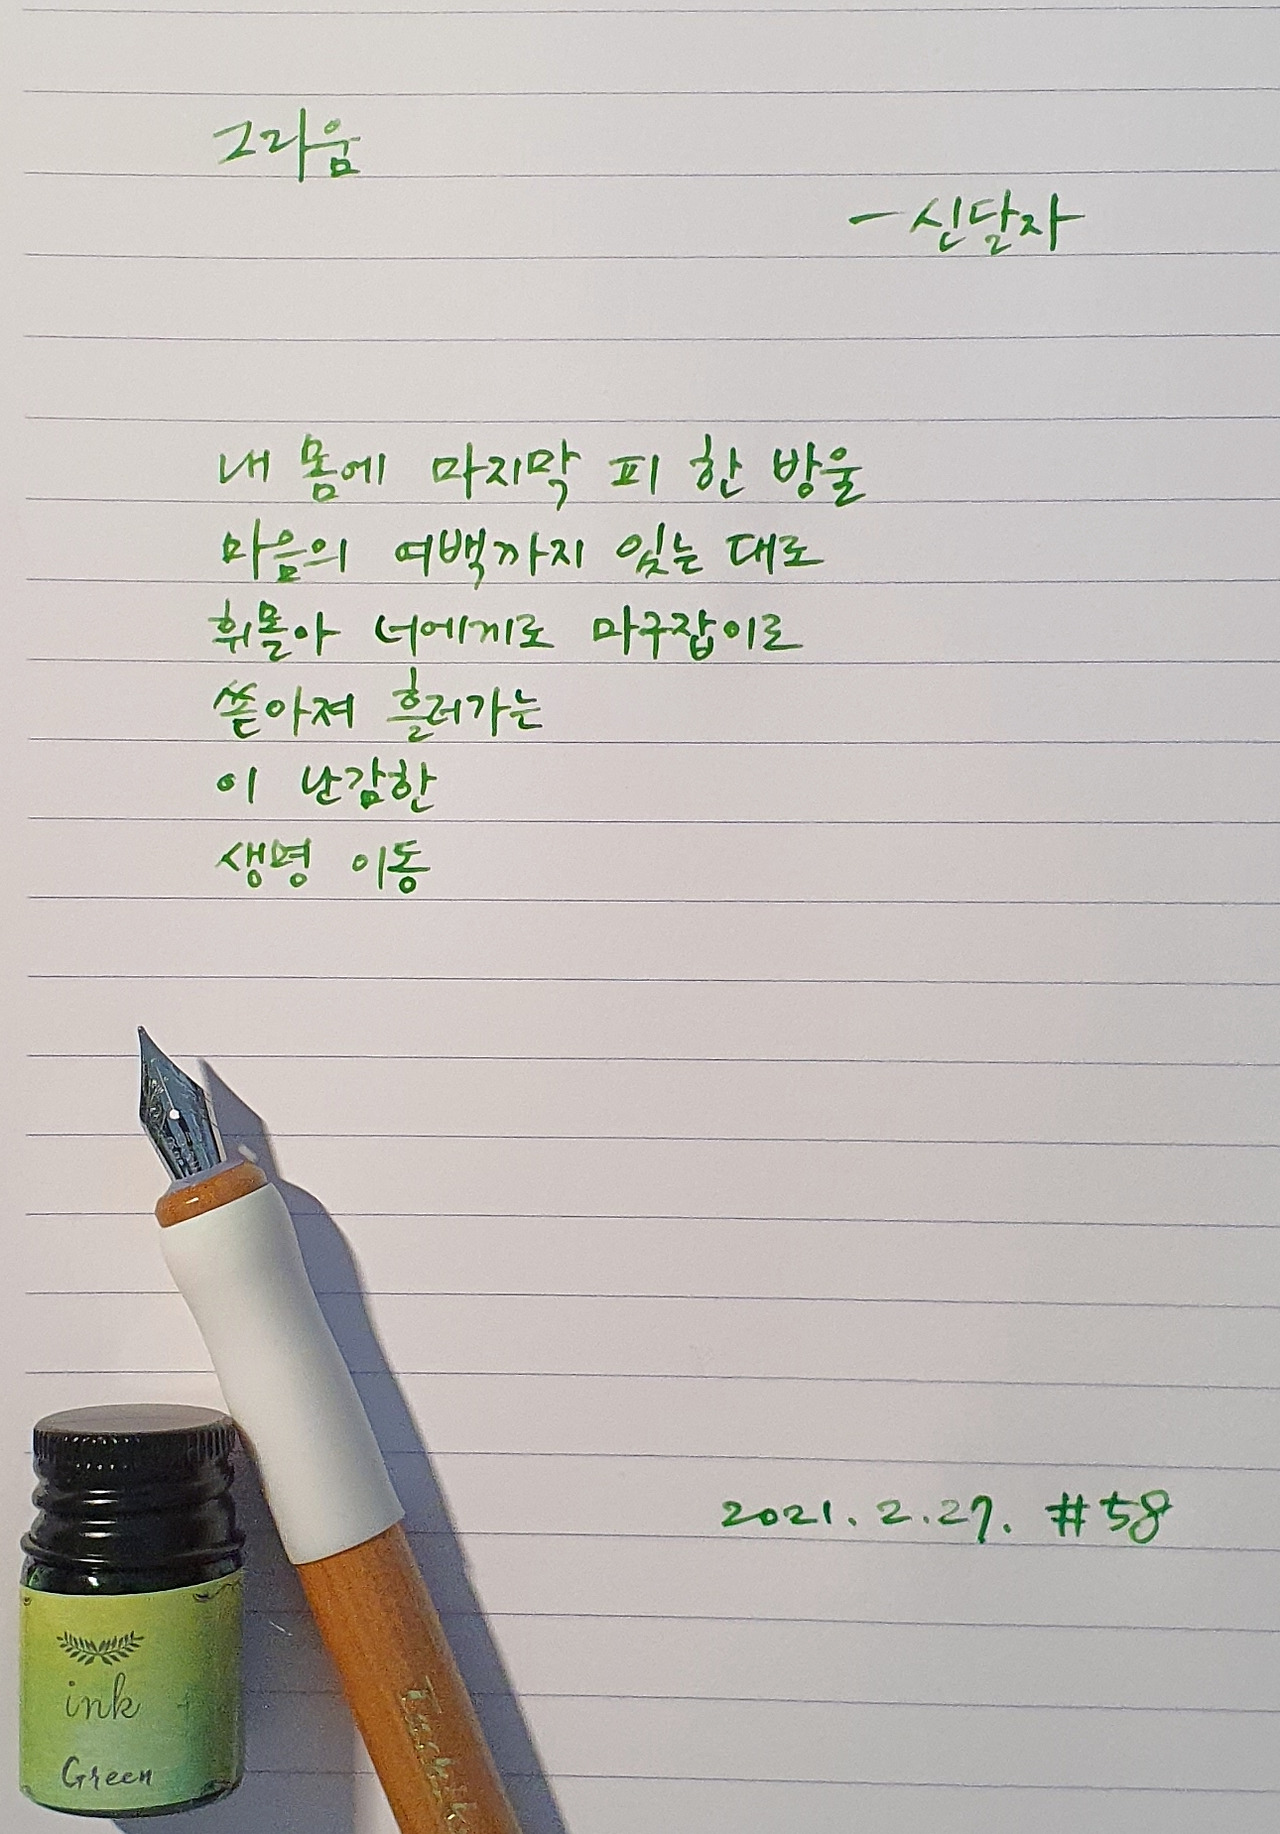 그리움
- 신달자
내 몸에 마지막 피 한 방울
마음의 여백까지 있는 대로
휘몰아 너에게로 마구잡이로
쏟아져 흘러가는
이 난감한
생명 이동
2021. 2. 27. #58
ink
Green